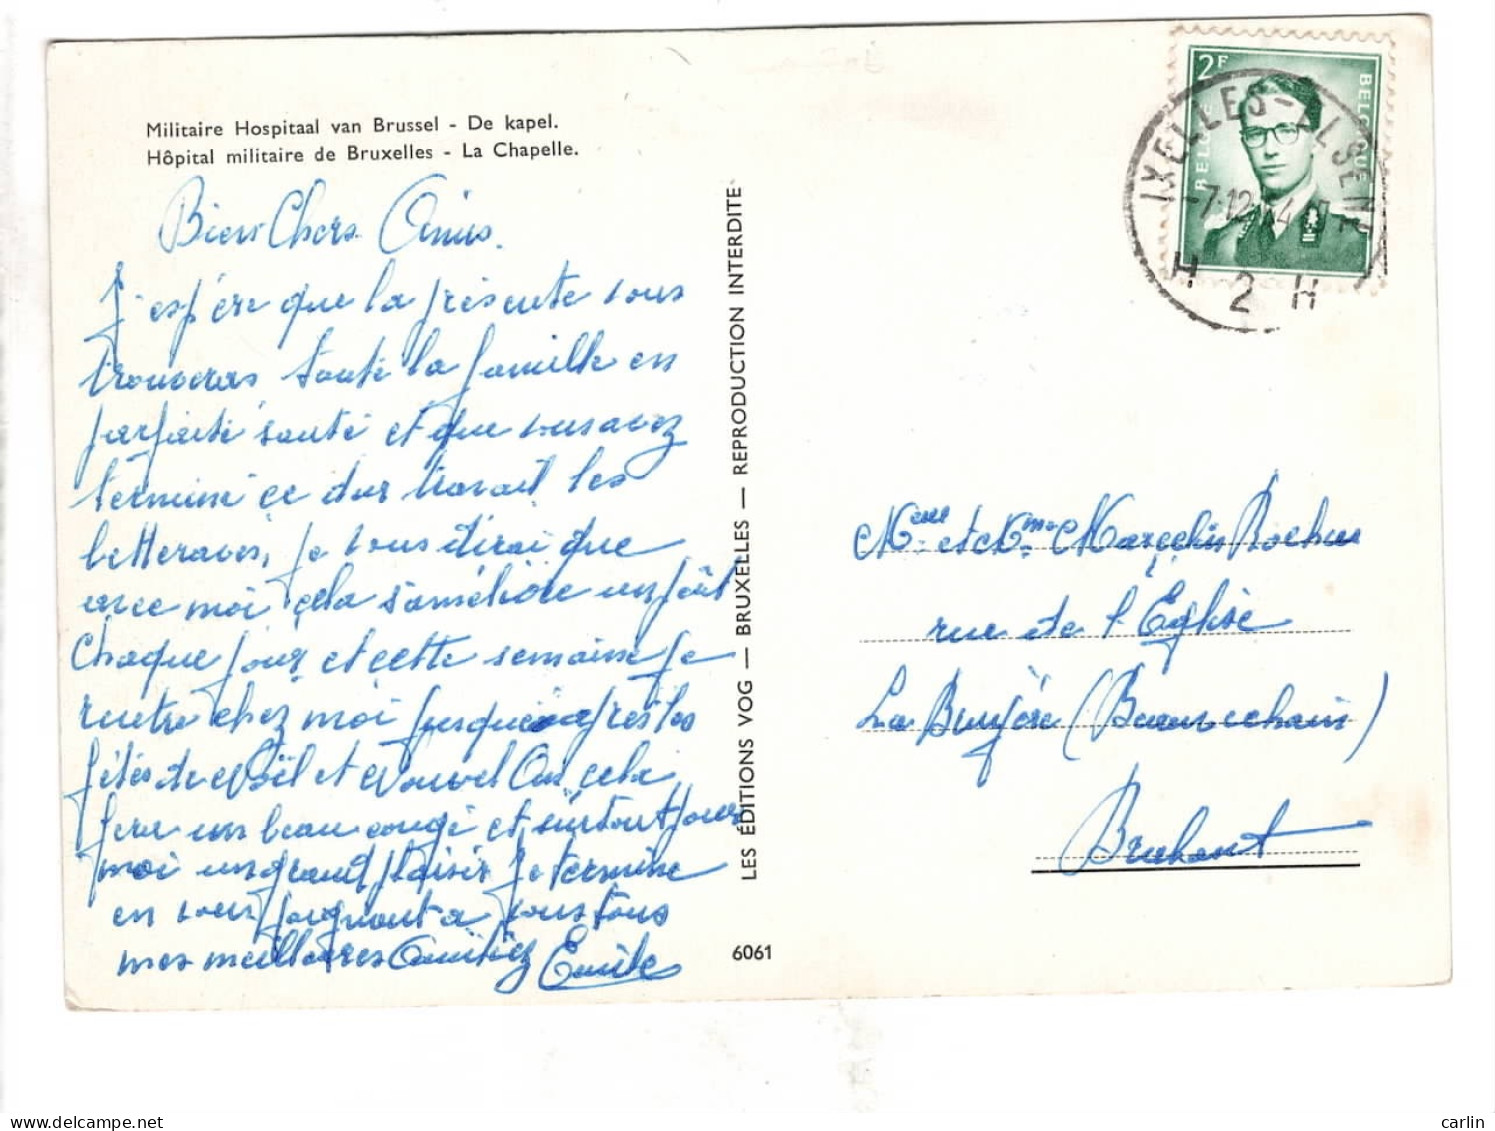 Militaire Hospitaal van Brussel - De kapel.
Hôpital militaire de Bruxelles - La Chapelle.
Biens Chers Amis.
J'espère que la présente vous
trouveras toute la famille en
parfaite santé et que vous avez
terminé ce dur travail les
betteraves, je vous dirai que
avec moi cela s'améliore un peut
chaque jour et cette semaine je
rentre chez moi jusque après les
fêtes de Noël et Nouvel An, cela
fera un beau congé et surtout pour
moi un grand plaisir je termine
en vous joignant a vous tous
mes meilleures Amitiez Emile
LES ÉDITIONS VOG — BRUXELLES — REPRODUCTION INTERDITE
6061
2F
BELGIE BELGIQUE
IXELLES-ELSENE
-7-12
H 2 H
et Marcelin Rochus
rue de l'Église
La Bruyère (Beauvechain)
Brabant
carlin